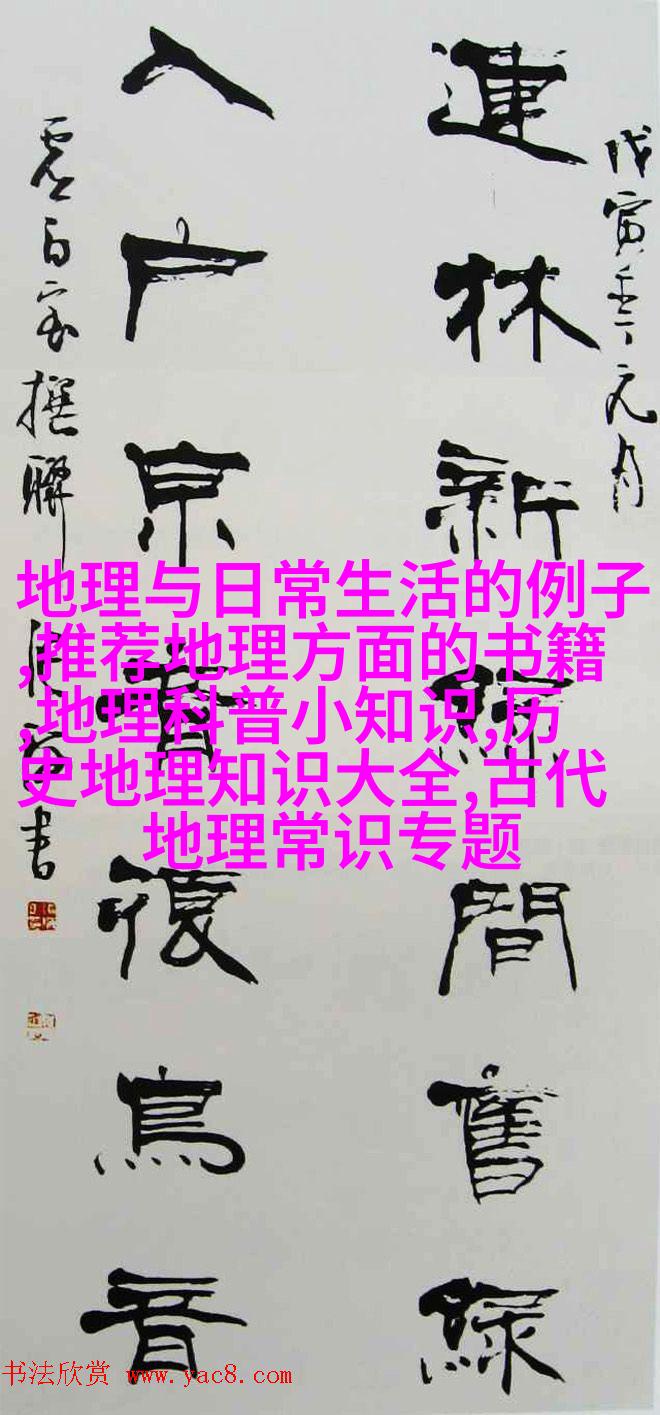 戊寅年元月
連林新綠間舊綠
入戶音復鳥音
撰聯
書
地理与日常生活的例子
,推荐地理方面的书籍
,地理科普小知识,历
史地理知识大全,古代
地理常识专题
书法欣赏 www.yac8.com